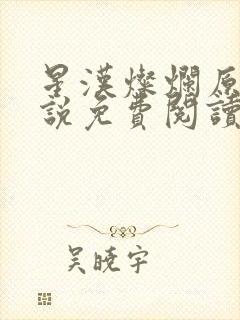 星漢燦爛原
說免費閱讀
吳曉宇